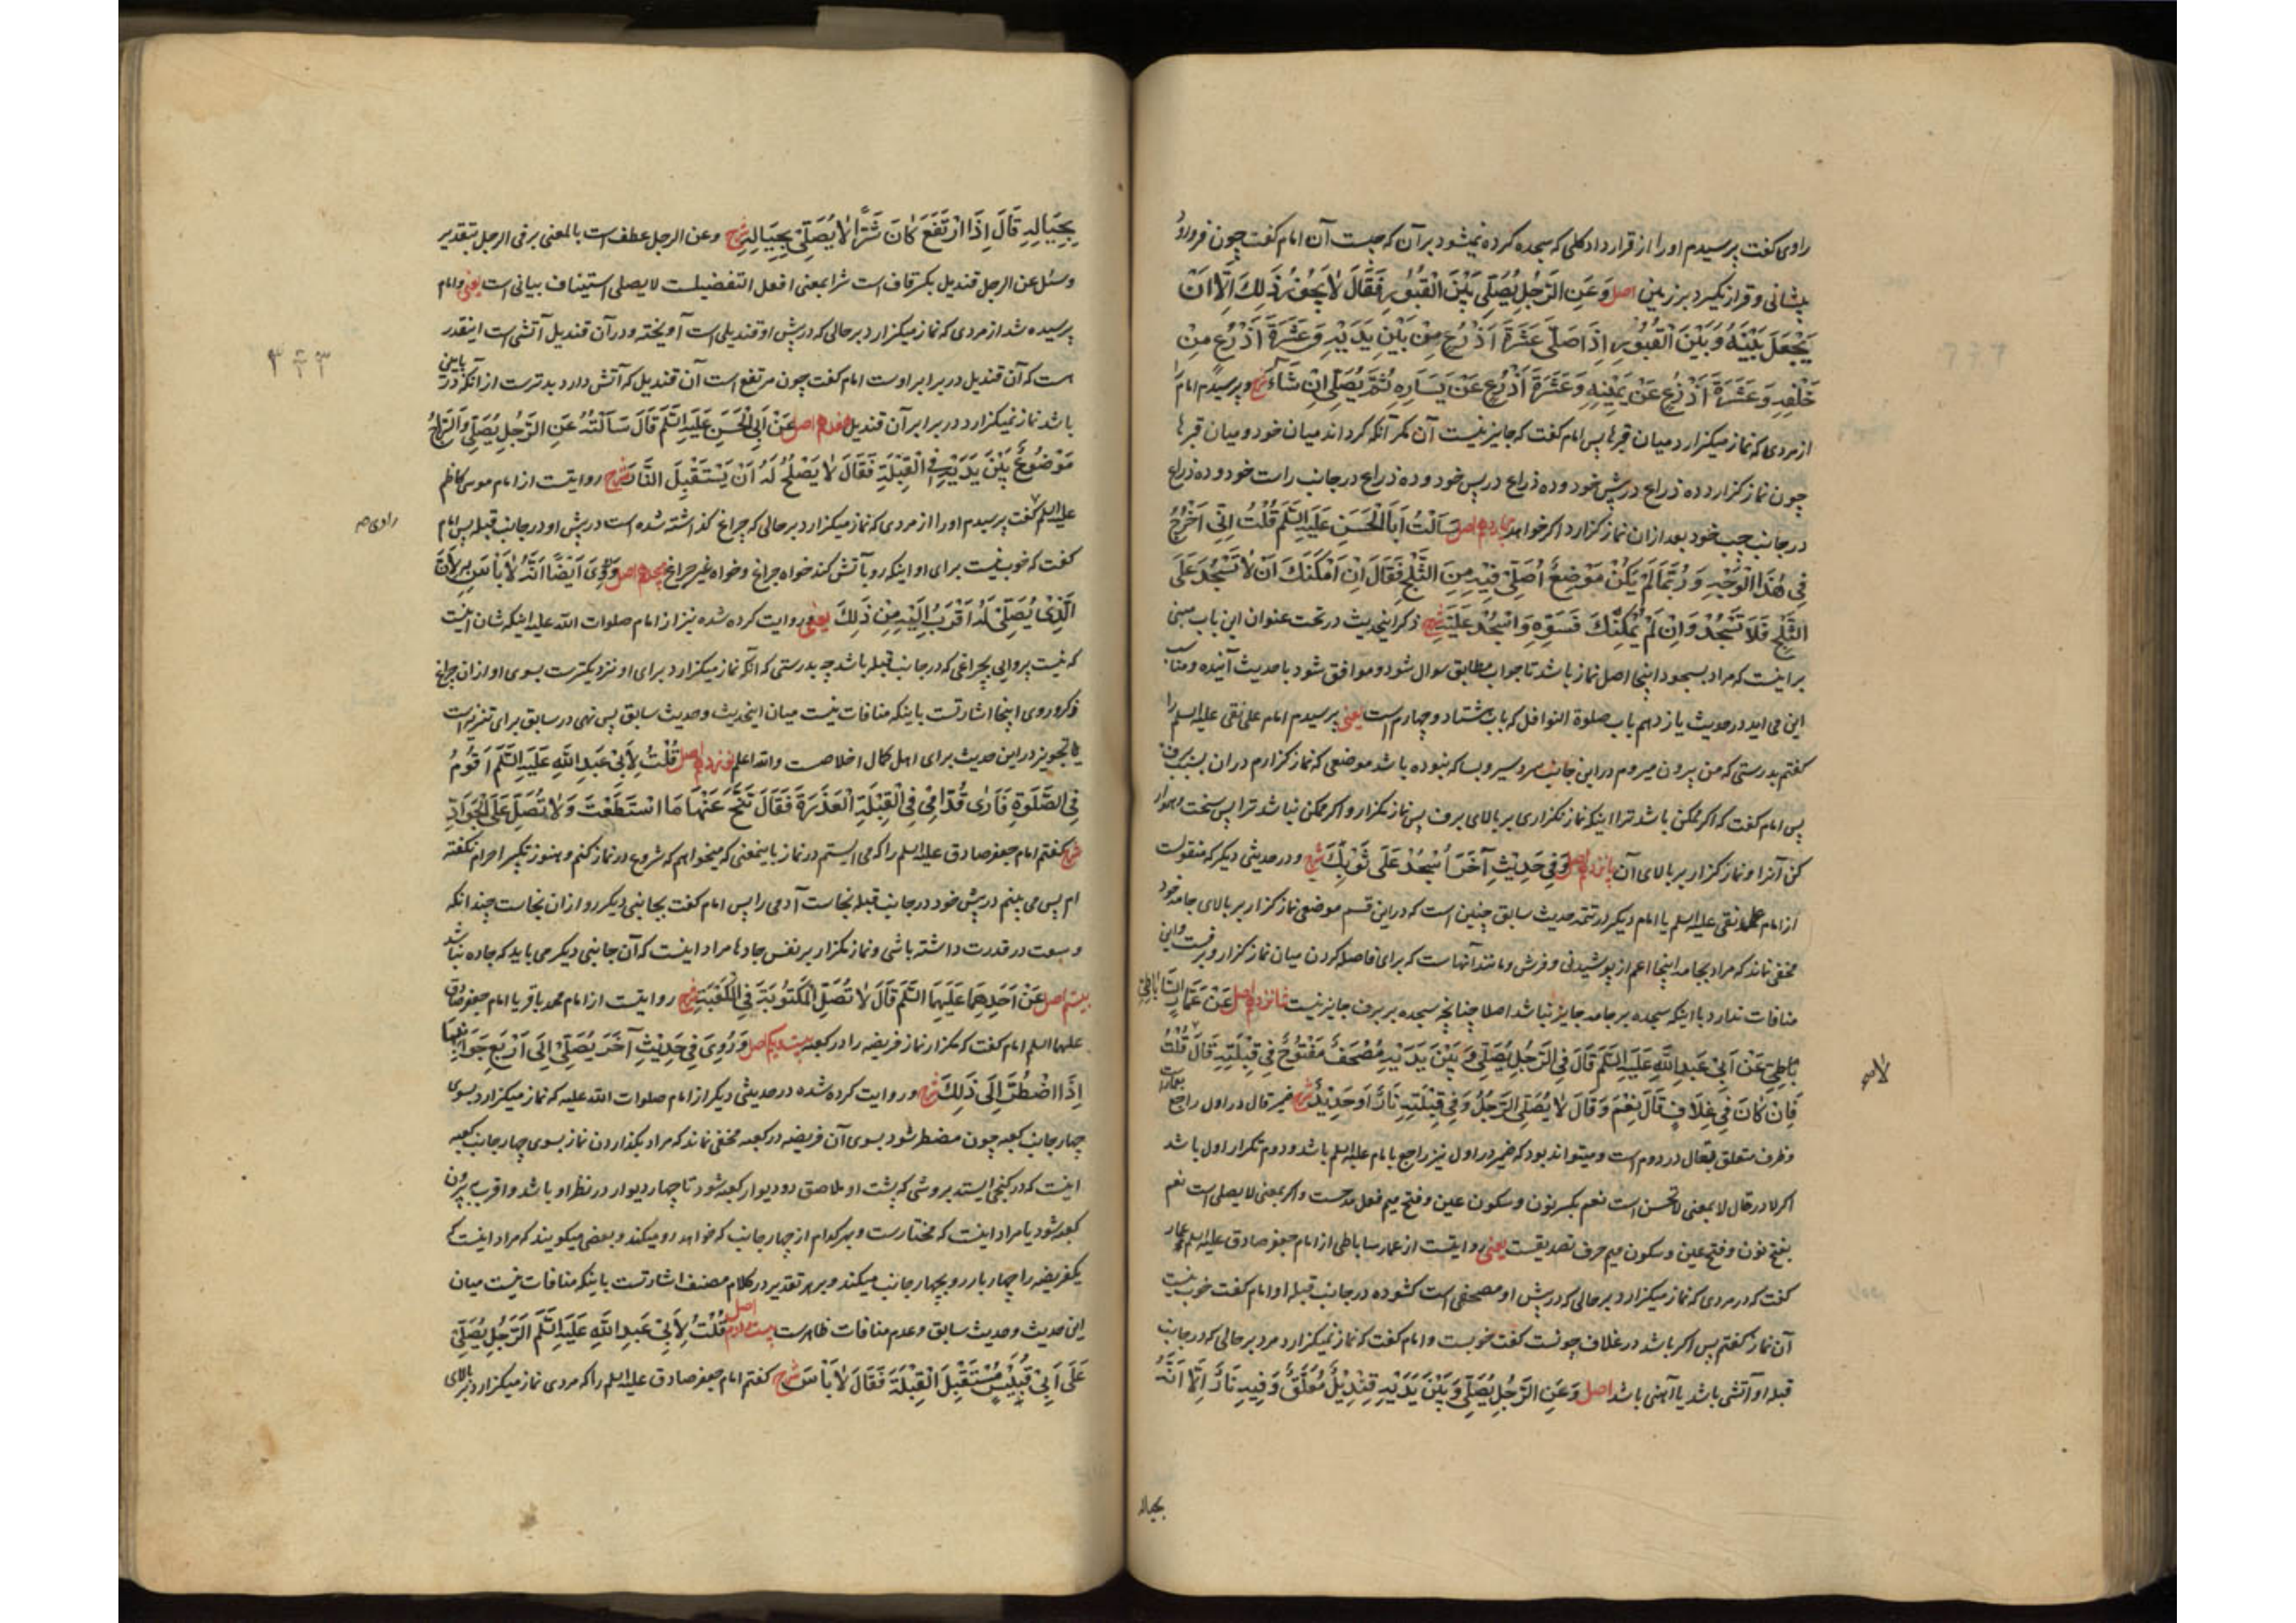 راوی کفت پرسیدم اورا از قرارداد کلی که سجده کرده نمیشود بر آن که چیست آن امام کفت چون فرورود
پیشانی و قرار نکیرد بر زمین اصل وَعَنِ الرَّجُلِ يُصَلِّي بَيْنَ الْقُبُورِ فَقَالَ لَا يَجُوزُ ذَلِكَ اِلَّا اَنْ
يَجْعَلَ بَيْنَهُ وَبَيْنَ الْقُبُورِ اِذَا صَلَّى عَشَرَةَ اَذْرُعٍ مِنْ بَيْنِ يَدَيْهِ وَعَشَرَةَ اَذْرُعٍ مِنْ
خَلْفِهِ وَعَشَرَةَ اَذْرُعٍ عَنْ يَمِينِهِ وَعَشَرَةَ اَذْرُعٍ عَنْ يَسَارِهِ ثُمَّ يُصَلِّي اِنْ شَاءَ شرح وپرسیدم امام را
از مردی که نماز میکزارد میان قبرها پس امام کفت که جایز نیست آن مکر آنکه کرداند میان خود و میان قبرها
چون نماز کزارد ده ذراع در پیش خود و ده ذراع در پس خود و ده ذراع در جانب راست خود و ده ذراع
در جانب چپ خود بعد از ان نماز کزارد اکر خواهد چهاردهم اصل سَاَلْتُ اَبَا الْحَسَنِ عَلَيْهِ السَّلَمُ قُلْتُ اِنِّي اَخْرُجُ
فِي هٰذَا الْوَجْهِ وَرُبَّمَا لَمْ يَكُنْ مَوْضِعٌ اُصَلِّي فِيهِ مِنَ الثَّلْجِ فَقَالَ اِنْ اَمْكَنَكَ اَنْ لَا تَسْجُدَ عَلَى
الثَّلْجِ فَلَا تَسْجُدْ وَاِنْ لَمْ يُمْكِنْكَ فَسَوِّهِ وَاسْجُدْ عَلَيْهِ شرح ذکر اینحدیث در تحت عنوان این باب مبنی
بر اینست که مراد بسجود اینجا اصل نماز باشد تا جواب مطابق سوال شود و موافق شود با حدیث آینده و مناسب
این می اید در حدیث یازدهم باب صلوة النوافل که باب هشتاد و چهارم است یعنی پرسیدم امام علی نقی علیه السلم را
کفتم بدرستی که من بیرون میروم در این جانب سردسیر و بسا که نبوده باشد موضعی که نماز کزارم دران بسبب برف
پس امام کفت که اکر ممکن باشد ترا اینکه نماز نکزاری بر بالای برف پس نماز مکزار و اکر ممکن نباشد ترا پس سخت و هموار
کن آنرا و نماز کزار بر بالای آن پانزدهم اصل وَفِي حَدِيثٍ آخَرَ اُسْجُدْ عَلَى ثَوْبِكَ شرح و در حدیثی دیکر که منقولست
از امام علی نقی علیه السلم یا امام دیکر در تتمه حدیث سابق چنین است که در این قسم موضعی نماز کزار بر بالای جامه خود
مخفی نماند که مراد بجامه اینجا اعم از پوشیدنی و فرش و مانند آنهاست که برای فاصله کردن میان نماز کزار و برفست و این
منافات ندارد با اینکه سجده بر جامه جایز نباشد اصلا چنانچه سجده بر برف جایز نیست شانزدهم اصل عَنْ عَمَّارٍ السَّابَاطِيِّ
بَاطِيِّ عَنْ اَبِي عَبْدِ اللَّهِ عَلَيْهِ السَّلَمُ قَالَ فِي الرَّجُلِ يُصَلِّي وَبَيْنَ يَدَيْهِ مُصْحَفٌ مَفْتُوحٌ فِي قِبْلَتِهِ قَالَ لَا قُلْتُ
فَاِنْ كَانَ فِي غِلَافٍ قَالَ نَعَمْ وَقَالَ لَا يُصَلِّي الرَّجُلُ وَفِي قِبْلَتِهِ نَارٌ اَوْ حَدِيدٌ شرح ضمیر قال در اول راجع بعمارست
و ظرف متعلق بقال در دوم است و میتواند بود که ضمیر در اول نیز راجع بامام علیه السلم باشد و دوم تکرار اول باشد
اکر لا در قال لا بمعنی لا تحسن است نعم بکسر نون و سکون عین و فتح میم فعل مدحست و اکر بمعنی لا یصلی است نعم
بفتح نون و فتح عین و سکون میم حرف تصدیقست یعنی روایتست از عمار ساباطی از امام جعفر صادق علیه السلم عمار
کفت که در مردی که نماز میکزارد بر حالی که در پیش او مصحفی است کشوده در جانب قبله او امام کفت خوب نیست
آن نماز کفتم پس اکر باشد در غلاف چونست کفت خوبست و امام کفت که نماز نمیکزارد مرد بر حالی که در جانب
قبله او آتشی باشد یا آهنی باشد اصل وَعَنِ الرَّجُلِ يُصَلِّي وَبَيْنَ يَدَيْهِ قِنْدِيلٌ مُعَلَّقٌ وَفِيهِ نَارٌ اِلَّا اَنَّهُ
بحیاله
بِحِيَالِهِ قَالَ اِذَا ارْتَفَعَ كَانَ شَرًّا لَا يُصَلِّي بِحِيَالِهِ شرح وعن الرجل عطف است بالمعنی بر فی الرجل بتقدیر
وسئل عن الرجل قندیل بکسر قاف است شرا بمعنی افعل التفضیلست لا یصلی استیناف بیانی است یعنی و امام
پرسیده شد از مردی که نماز میکزارد بر حالی که در پیش او قندیلی است آویخته و در آن قندیل آتشی است اینقدر
هست که آن قندیل در برابر اوست امام کفت چون مرتفع است آن قندیل که آتش دارد بدترست از انکه در پایین
باشد نماز نمیکزارد در برابر آن قندیل هفدهم اصل عَنْ اَبِي الْحَسَنِ عَلَيْهِ السَّلَمُ قَالَ سَاَلْتُهُ عَنِ الرَّجُلِ يُصَلِّي وَالسِّرَاجُ
مَوْضُوعٌ بَيْنَ يَدَيْهِ فِي الْقِبْلَةِ فَقَالَ لَا يَصْلُحُ لَهُ اَنْ يَسْتَقْبِلَ النَّارَ شرح روایتست از امام موسی کاظم
علیه السلم کفت پرسیدم اورا از مردی که نماز میکزارد بر حالی که چراغ کذاشته شده است در پیش او در جانب قبله پس امام
راوی صح
کفت که خوب نیست برای او اینکه رو بآتش کند خواه چراغ و خواه غیر چراغ هیجدهم اصل وَرُوِيَ اَيْضًا اَنَّهُ لَا بَأْسَ بِهِ لِاَنَّ
الَّذِي يُصَلِّي لَهُ اَقْرَبُ اِلَيْهِ مِنْ ذَلِكَ یعنی و روایت کرده شده نیز از امام صلوات الله علیه اینکه شان اینست
که نیست پروایی بچراغی که در جانب قبله باشد چه بدرستی که آنکه نماز میکزارد برای او نزدیکترست بسوی او از ان چراغ
ذکر و روی اینجا اشارتست باینکه منافات نیست میان اینحدیث و حدیث سابق پس نهی در سابق برای تنزیه است
یا تجویز در این حدیث برای اهل کمال اخلاصست والله اعلم نوزدهم اصل قُلْتُ لِاَبِي عَبْدِ اللَّهِ عَلَيْهِ السَّلَمُ اَقُومُ
فِي الصَّلٰوةِ فَاَرٰى قُدَّامِي فِي الْقِبْلَةِ الْعَذَرَةَ فَقَالَ تَنَحَّ عَنْهَا مَا اسْتَطَعْتَ وَلَا تُصَلِّ عَلَى الْجَوَادِّ
شرح کفتم امام جعفر صادق علیه السلم را که می ایستم در نماز باینمعنی که میخواهم که شروع در نماز کنم و هنوز تکبیر احرام نکفته
ام پس می بینم در پیش خود در جانب قبله نجاست آدمی را پس امام کفت بجانبی دیکر رو از ان نجاست چندانکه
وسعت در قدرت داشته باشی و نماز مکزار بر نفس جادها مراد اینست که آن جانبی دیکر می باید که جاده نباشد
بیستم اصل عَنْ اَحَدِهِمَا عَلَيْهِمَا السَّلَمُ قَالَ لَا تُصَلِّ الْمَكْتُوبَةَ فِي الْكَعْبَةِ شرح روایتست از امام محمد باقر یا امام جعفر صادق
علیهما السلم امام کفت که مکزار نماز فریضه را در کعبه بیست و یکم اصل وَرُوِيَ فِي حَدِيثٍ آخَرَ يُصَلِّي اِلَى اَرْبَعِ جَوَانِبِهَا
اِذَا اضْطُرَّ اِلَى ذَلِكَ شرح و روایت کرده شده در حدیثی دیکر از امام صلوات الله علیه که نماز میکزارد بسوی
چهار جانب کعبه چون مضطر شود بسوی آن فریضه در کعبه مخفی نماند که مراد بکذاردن نماز بسوی چهار جانب کعبه
اینست که در کنجی ایستد بروشی که پشت او ملاصق دو دیوار کعبه شود تا چهار دیوار در نظر او باشد و اقرب ببیرون
کعبه شود یا مراد اینست که مختارست و بهر کدام از چهار جانب که خواهد رو میکند و بعضی میکویند که مراد اینست که
یکفریضه را چهار بار رو بچهار جانب میکند و بر هر تقدیر در کلام مصنف اشارتست باینکه منافات نیست میان
این حدیث و حدیث سابق و عدم منافات ظاهرست بیست و دوم اصل قُلْتُ لِاَبِي عَبْدِ اللَّهِ عَلَيْهِ السَّلَمُ الرَّجُلُ يُصَلِّي
عَلَى اَبِي قُبَيْسٍ مُسْتَقْبِلَ الْقِبْلَةِ فَقَالَ لَا بَأْسَ شرح کفتم امام جعفر صادق علیه السلم را که مردی نماز میکزارد بر بالای